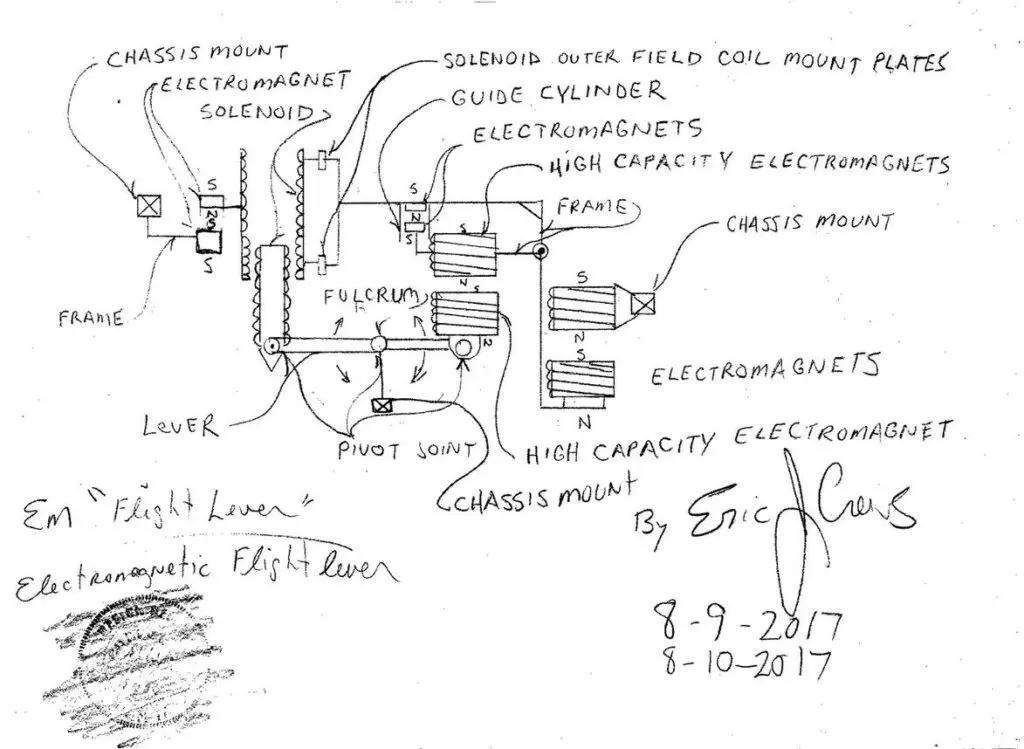 CHASSIS MOUNT
ELECTROMAGNET
SOLENOID
SOLENOID OUTER FIELD COIL MOUNT PLATES
GUIDE CYLINDER
ELECTROMAGNETS
HIGH CAPACITY ELECTROMAGNETS
FRAME
CHASSIS MOUNT
S
N
S
S
S
N
S
S
N
S
N
S
N
S
N
FRAME
FULCRUM
ELECTROMAGNETS
LEVER
PIVOT JOINT
HIGH CAPACITY ELECTROMAGNET
CHASSIS MOUNT
Em "Flight Lever"
Electromagnetic Flight lever
By Eric J
8-9-2017
8-10-2017